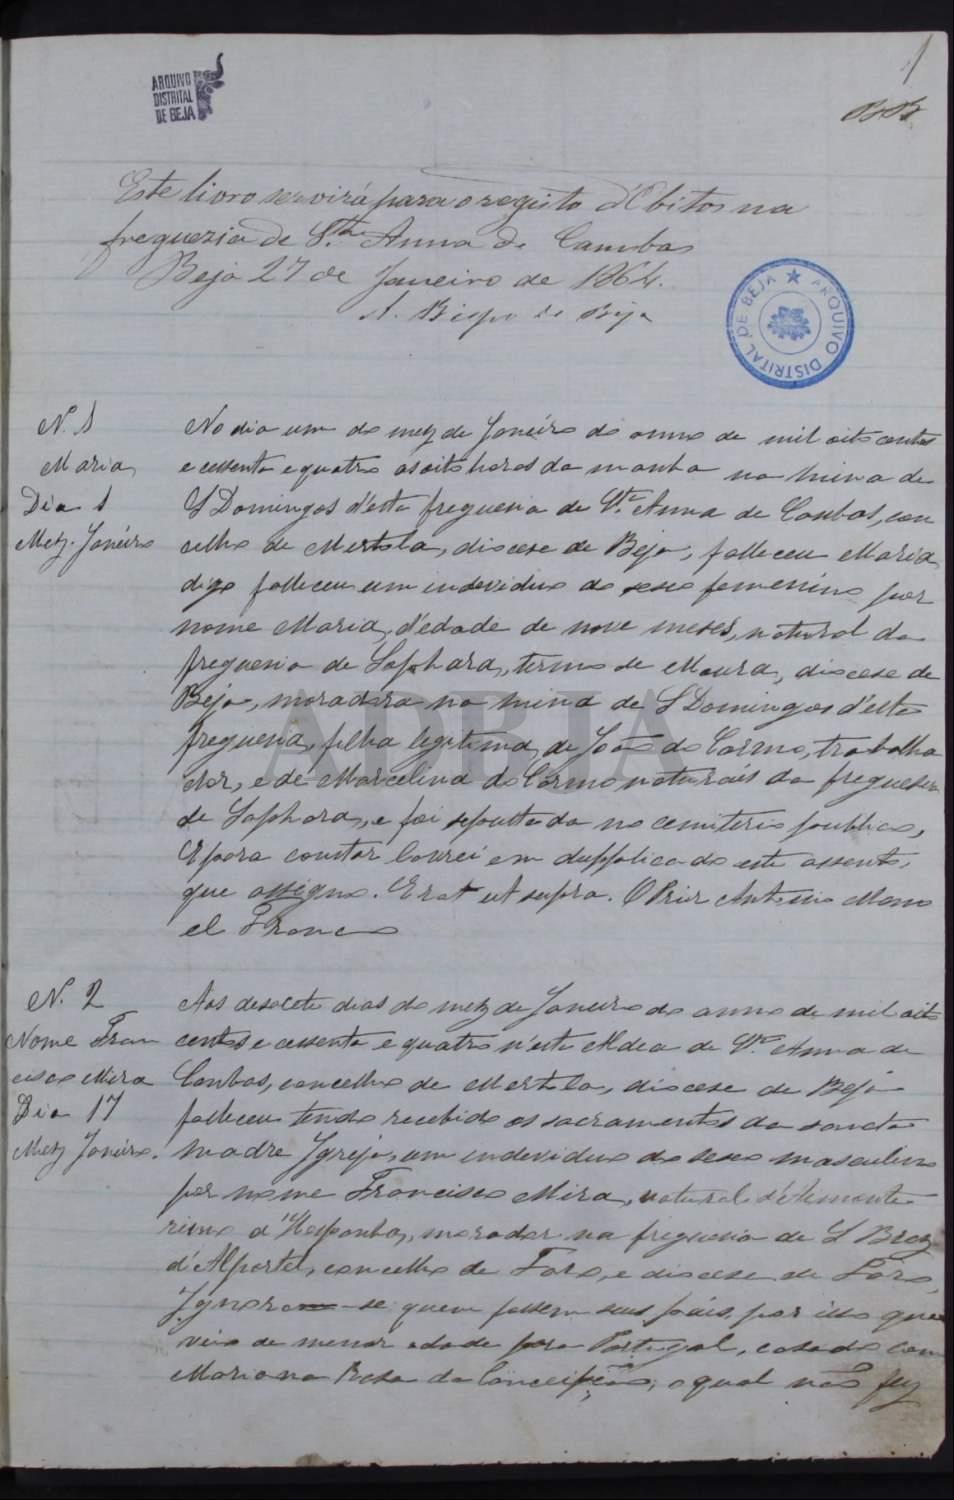 1
ARQUIVO
DISTRITAL
DE BEJA
Este livro servirá para o registo d'Obitos na
freguezia de S.ta Anna de Cambas
Beja 27 de Janeiro de 1864.
A. Bispo de Beja
ARQUIVO DISTRITAL DE BEJA
N. 1
Maria
Dia 1
Mez. Janéiro
No dia um do mez de Janéiro do anno de mil oito centos
e cessenta e quatro ás oito horas da manha na mina de
S Domingos d'esta freguesia de S.ta Anna de Canbas, con
celho de Mertola, diocese de Beja, falleceu Maria,
digo falleceu um individuo do sexo femenino por
nome Maria, d'edade de nove meses, natural da
freguesia de Saphara, termo de Moura, diocese de
Beja, moradora na mina de S Domingos d'esta
freguesia, filha legitima de João do Carmo, trabalha
dor, e de Marcelina do Carmo, naturais da freguesia
de Saphara, e foi sepultada no cemiterio publico,
E para constar lavrei em dupplicado este assento,
que assigno. Erat ut supra. O Prior Antonio Mano
el Franco
ADBJA
N. 2
Nome Fran
cisco Mira
Dia 17
Mez Janéiro.
Aos desasete dias do mez de Janeiro do anno de mil oito
centos e cessenta e quatro n'esta Aldea de S.ta Anna de
Canbas, concelho de Mertola, diocese de Beja
falleceu tendo recebido os sacramentos da sancta
madre Igreja, um individuo do sexo masculino
por nome Francisco Mira, natural d'Aimonte
reino d'Hespanha, morador na freguesia de S Braz
d'Alportel, concelho de Faro, e diocese de Faro,
Ignora-se quem fossem seus pais, por isso que
veio de menor edade para Portugal, casado com
Mariana Rosa da Conceipção, o qual não fez